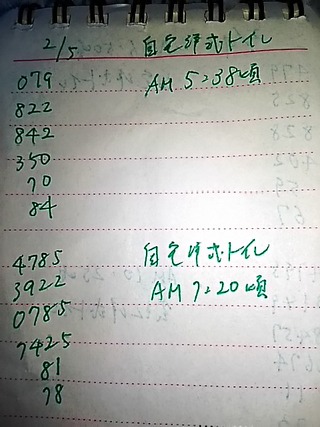 2/5 自宅洋式トイレ
079 AM 5:38頃
822
842
350
70
84
4785 自宅洋式トイレ
3922 AM 7:20頃
0785
7425
81
78